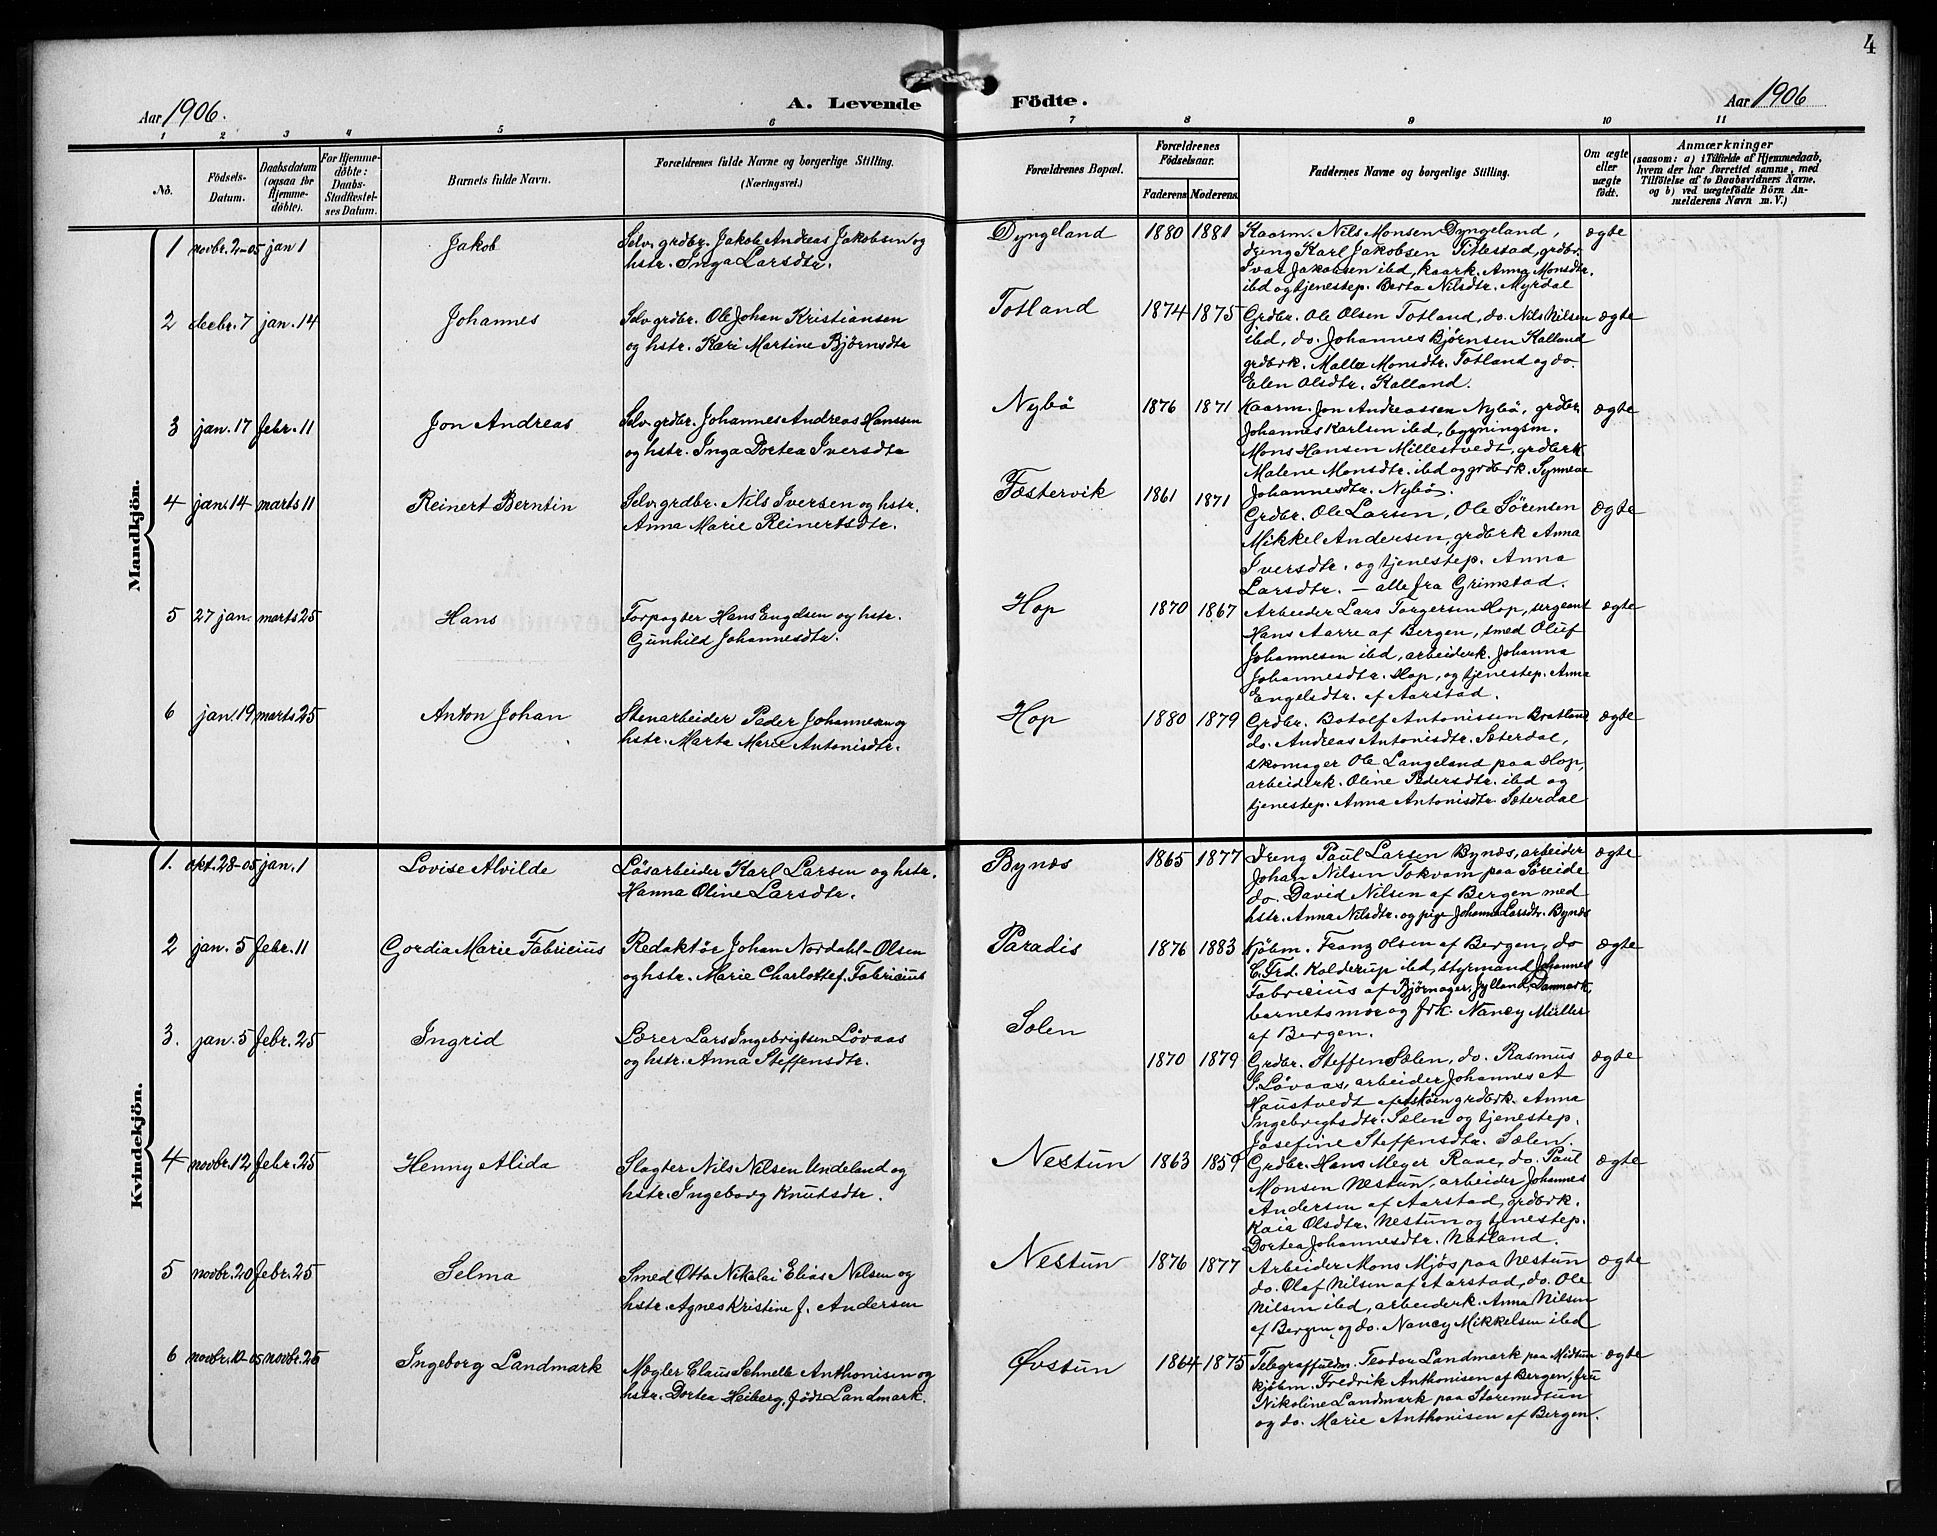 4
Aar 1906.
A. Levende
Födte.
Aar 1906
1 2 3 4 5 6 7 8 9 10 11
No.
Födsels-
Datum.
Daabsdatum
(ogsaa for
Hjemme-
döbte).
For Hjemme-
döbte:
Daabs-
Stadfæstel-
ses Datum.
Barnets fulde Navn.
Forældrenes fulde Navne og borgerlige Stilling.
(Næringsvei.)
Forældrenes Bopæl.
Forældrenes
Födselsaar.
Faderens. Moderens.
Faddernes Navne og borgerlige Stilling.
Om ægte
eller
uægte
födt.
Anmærkninger
(saasom: a) i Tilfælde af Hjemmedaab,
hvem der har forrettet samme, med
Tilföielse af to Daabsvidners Navne,
og b) ved uægtefödte Börn An-
melderens Navn m. V.)
Mandkjön.
1 novbr. 2-05 jan 1 Jakob
Selv. grdbr. Jakob Andreas Jakobsen og
hstr. Inga Larsdtr.
Dyngeland 1880 1881
Kaarm. Nils Monsen Dyngeland,
dreng Karl Jakobsen Titlestad, grdbr.
Ivar Jakobsen ibd, kaark. Anna Monsdtr.
ibd og tjenestep. Berta Nilsdtr. Myrdal
ægte
2 decbr. 7 jan. 14 Johannes
Selv. grdbr. Ole Johan Kristiansen
og hstr. Kari Martine Bjørnsdtr
Totland 1874 1875
Grdbr. Ole Olsen Totland, do. Nils Nilsen
ibd, do. Johannes Bjørnsen Kalland
grdbrk. Malla Monsdtr. Totland og do.
Elen Olsdtr. Kalland.
ægte
3 jan. 17 febr. 11 Jon Andreas
Selv. grdbr. Johannes Andreas Hanssen
og hstr. Inga Dortea Iversdtr
Nybö 1876 1871
Kaarm. Jon Andreassen Nybö, grdbr.
Johannes Karlsen ibd, bygningsm.
Mons Hansen Millestvedt, grdbrk
Malene Monsdtr. ibd og grdbrk. Synneva
Johannesdtr. Nybö.
ægte
4 jan. 14 marts 11 Reinert Berntin
Selv. grdbr. Nils Iversen og hstr.
Anna Marie Reinertsdtr.
Fæstervik 1861 1871
Grdbr. Ole Larsen, Ole Sörensen
Mikkel Andersen, grdbrk Anna
Iversdtr. og tjenestep. Anna
Larsdtr. – alle fra Grimstad.
ægte
5 27 jan. marts 25 Hans
Forpagter Hans Engelsen og hstr.
Gunhild Johannesdtr.
Hop 1870 1867
Arbeider Lars Torgersen Hop, sergeant
Hans Aarre af Bergen, smed Oluf
Johannesen ibd, arbeiderk. Johanna
Johannesdtr. Hop, og tjenestep. Anna
Engelsdtr. af Aarstad.
ægte
6 jan. 19 marts 25 Anton Johan
Stenarbeider Peder Johannesen og
hstr. Marta Marie Antonisdtr.
Hop 1880 1879
Grdbr. Botolf Antonissen Bratland,
do. Andreas Antonisdtr. Sæterdal,
skomager Ole Langeland paa Hop,
arbeiderk. Oline Pedersdtr. ibd og
tjenestep. Anna Antonisdtr. Sæterdal
ægte
Kvindekjön.
1. okt. 28-05 jan. 1 Lovise Alvilde
Lösarbeider Karl Larsen og hstr.
Hanna Oline Larsdtr.
Bynæs 1865 1877
Dreng Paul Larsen Bynæs, arbeider
Johan Nilsen Tokvam paa Söreide
do. David Nilsen af Bergen med
hstr. Anna Nilsdtr. og pige Johanna Larsdtr. Bynæs
ægte
2 jan. 5 febr. 11 Gordia Marie Fabricius
Redaktör Johan Nordahl-Olsen
og hstr. Marie Charlotte f. Fabricius
Paradis 1876 1883
Kjöbm. Franz Olsen af Bergen, do
C. Frd. Kolderup ibd, styrmand Johannes
Fabricius af Bjørnager, Jylland, Danmark,
barnets mor og frk. Nancy Müller
af Bergen.
ægte
3. jan. 5 febr. 25 Ingrid
Lærer Lars Ingebrigtsen Lövaas
og hstr. Anna Steffensdtr.
Sælen 1870 1879
Grdbr. Steffen Sælen, do. Rasmus
I. Lövaas, arbeider Johannes A
Haustvedt af Askøen grdbrk. Anna
Ingebrigtsdtr. Sælen og tjenestep.
Josefine Steffensdtr. Sælen.
ægte
4 novbr. 12 febr. 25 Henny Alida
Slagter Nils Nilsen Undeland og
hstr. Ingeborg Knutsdtr.
Nestun 1863 1859
Grdbr. Hans Meyer Raae, do. Paul
Monsen Nestun, arbeider Johannes
Andersen af Aarstad, grdbrk.
Kaia Olsdtr. Nestun og tjenestep.
Dortea Johannesdtr. Natland.
ægte
5 novbr. 20 febr. 25 Selma
Smed Otto Nikolai Elias Nilsen og
hstr. Agnes Kristine f. Andersen
Nestun 1876 1877
Arbeider Mons Mjös paa Nestun
do. Olaf Nilsen af Aarstad, do. Ole
Nilsen ibd, arbeiderk. Anna Nilsen
af Bergen, og do. Nancy Mikkelsen ibd
ægte
6 novbr. 10-05 novbr. 25 Ingeborg Landmark
Mægler Claus Schnelle Anthonisen og
hstr. Dortea Heiberg, födt Landmark.
Øvstun 1864 1875
Telegraffuldm. Teodor Landmark paa Midtun
kjöbm. Fredrik Anthonisen af Bergen, fru
Nikoline Landmark paa Storemidtun
og do. Marie Anthonisen af Bergen.
ægte